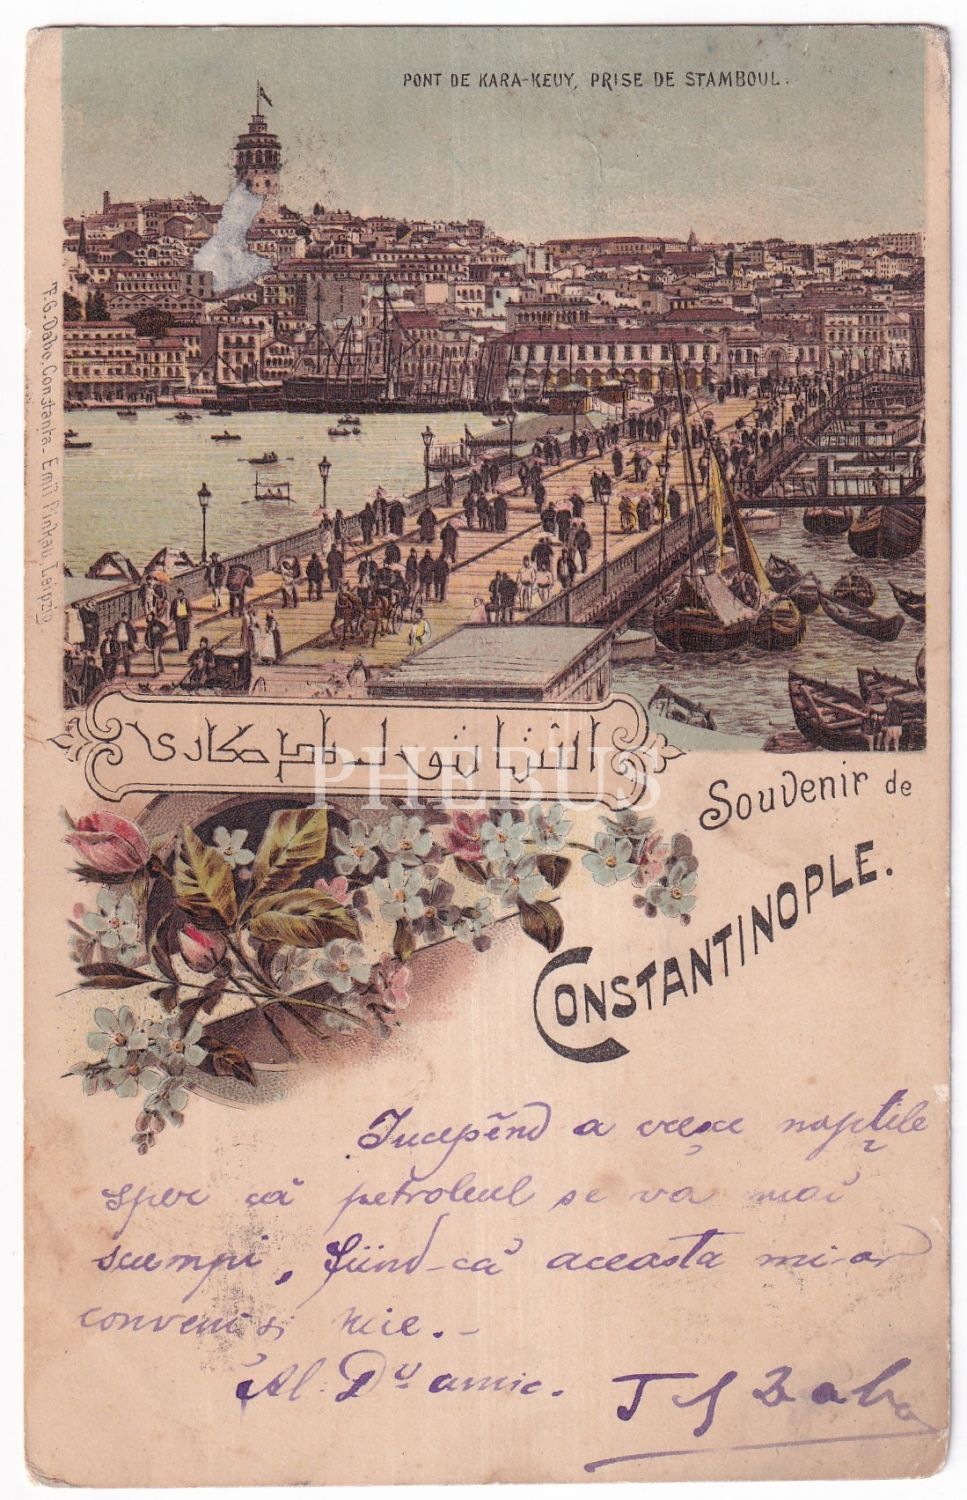 PONT DE KARA-KEUY, PRISE DE STAMBOUL.
F.G. Dabo-Constanța - Emil Pinkau Leipzig.
PHEBUS
Souvenir de
CONSTANTINOPLE.
Începênd a cresce nopțile
sper că petroleul se va mai
scumpi, fiind-că aceasta mi-ar
conveni și mie.-
Al Dv amic.